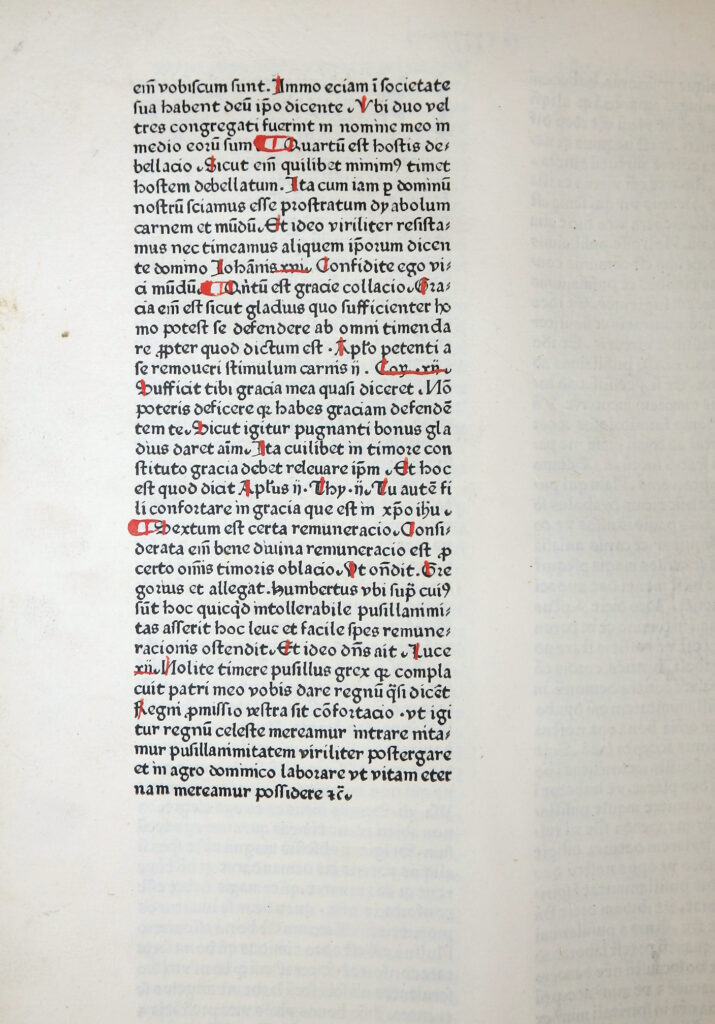 em̄ vobiscum sunt. Immo eciam ī societate
sua habent deū ip̄o dicente. Vbi duo vel
tres congregati fuerint in nomine meo in
medio eorū sum Quartū est hostis de⸗
bellacio. Sicut em̄ quilibet minimꝰ timet
hostem debellatum. Ita cum iam p dominū
nostrū sciamus esse prostratum dyabolum
carnem et mūdū. Et ideo viriliter resista⸗
mus nec timeamus aliquem ip̄orum dicen
te domino Iohānis xvi. Confidite ego vi⸗
ci mūdū. Quītū est gracie collacio. Gra⸗
cia em̄ est sicut gladius quo sufficienter ho
mo potest se defendere ab omni timenda
re ꝓpter quod dictum est. Apl̄o petenti a
se remoueri stimulum carnis ij. Coꝝ. xij.
Sufficit tibi gracia mea quasi diceret. Nō
poteris deficere qꝛ habes graciam defendē
tem te. Sicut igitur pugnanti bonus gla
dius daret aīm. Ita cuilibet in timore con
stituto gracia debet releuare ip̄m. Et hoc
est quod dicit Apl̄us ij. Thy. ij. Tu autē fi
li confortare in gracia que est in xp̄o ih̄u.
Sextum est certa remuneracio. Consi⸗
derata em̄ bene diuina remuneracio est ꝓ
certo om̄is timoris oblacio. Vt on̄dit. Gre
gorius et allegat. Humbertus vbi sup̄ cuiꝰ
sūt hoc quicqd̄ intollerabile pusillanimi⸗
tas asserit hoc leue et facile spes remune⸗
racionis ostendit. Et ideo dn̄s ait. Luce
xij. Nolite timere pusillus grex qꝛ compla
cuit patri meo vobis dare regnū q̄si dicēt
Regni ꝓmissio vestra sit cōfortacio. vt igi
tur regnū celeste mereamur intrare nita⸗
mur pusillanimitatem viriliter postergare
et in agro dominico laborare vt vitam eter
nam mereamur possidere ⁊c̄.